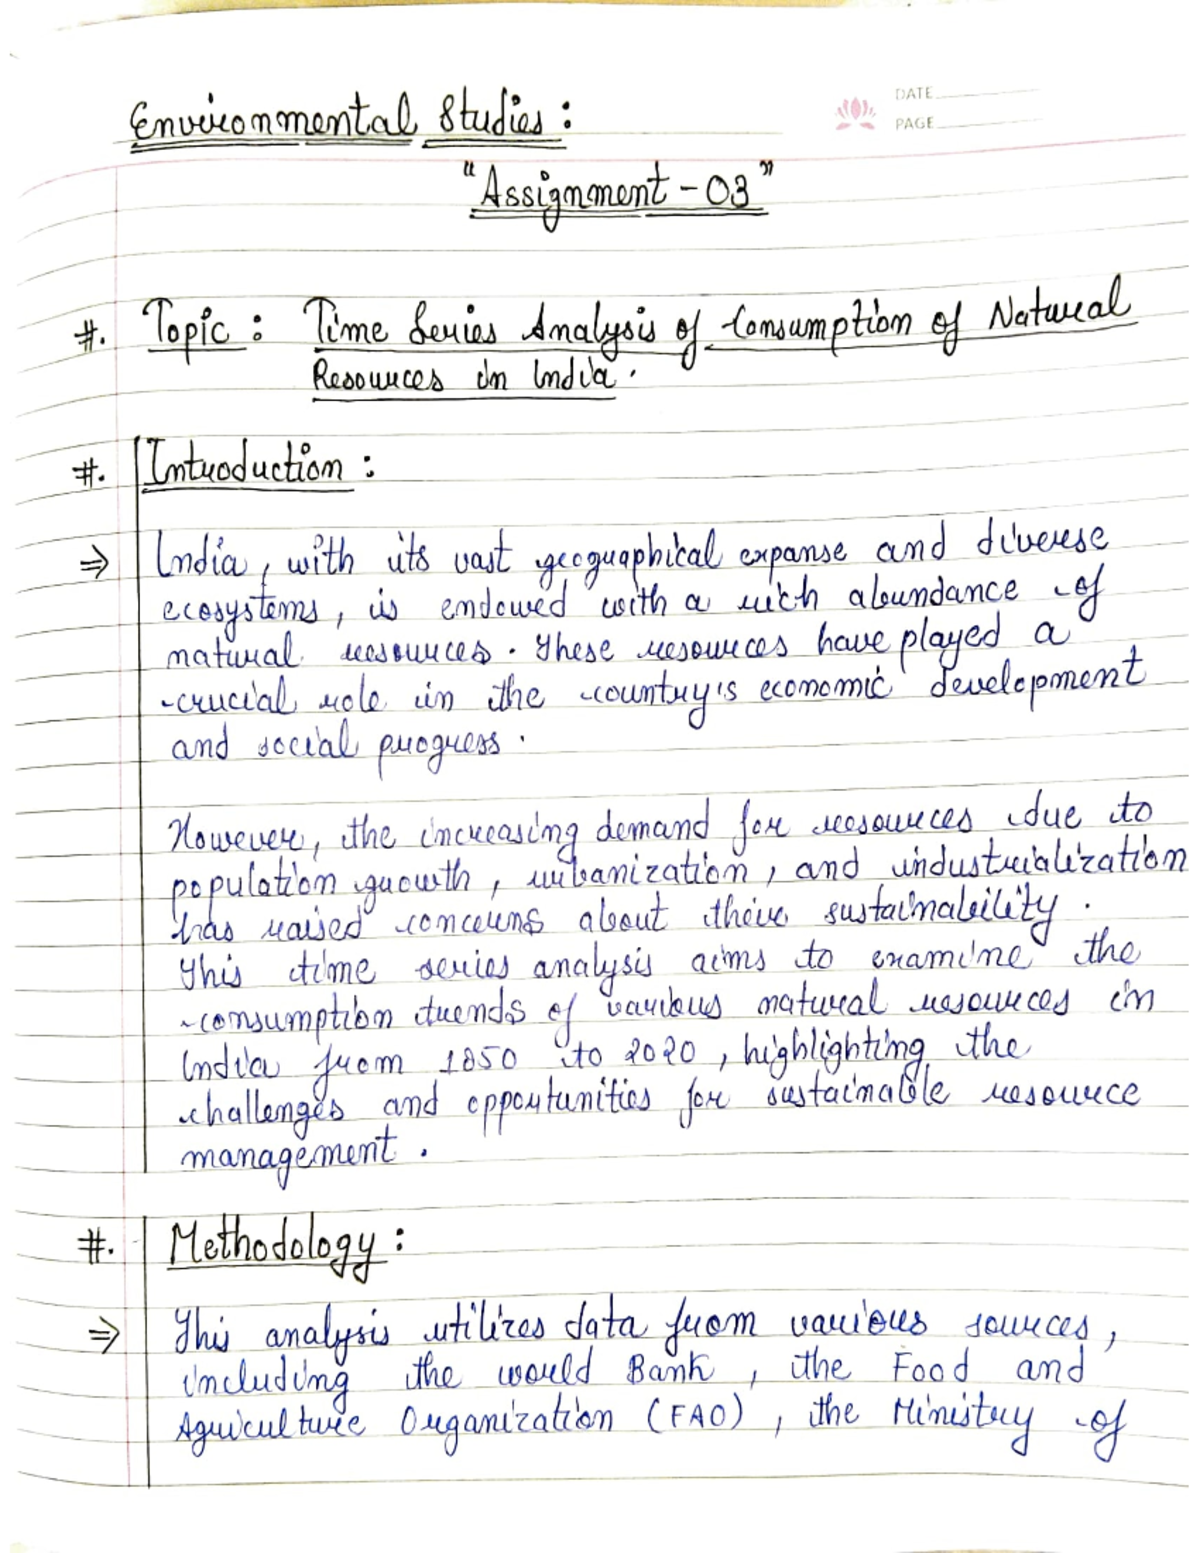 Environmental Studies :
DATE
PAGE
"Assignment - 03"
#. Topic : Time Series Analysis of Consumption of Natural
Resources in India.
#. Introduction :
⇒ India, with its vast geographical expanse and diverse
ecosystems, is endowed with a rich abundance of
natural resources. These resources have played a
crucial role in the country's economic development
and social progress.
However, the increasing demand for resources due to
population growth, urbanization, and industrialization
has raised concerns about their sustainability.
This time series analysis aims to examine the
consumption trends of various natural resources in
India from 1850 to 2020, highlighting the
challenges and opportunities for sustainable resource
management.
#. Methodology :
⇒ This analysis utilizes data from various sources,
including the would Bank, the Food and
Agriculture Organization (FAO), the Ministry of